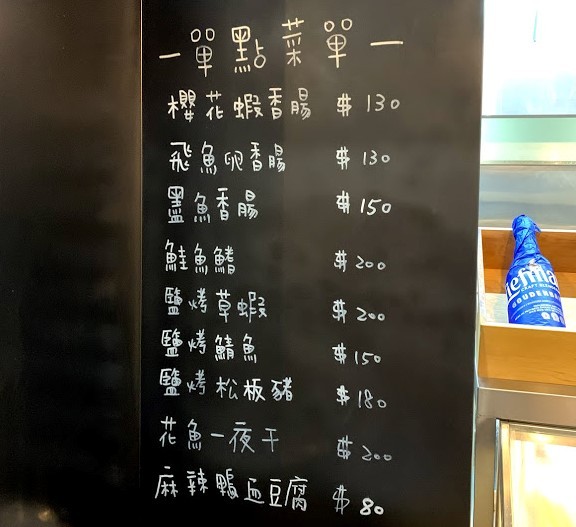 一單點菜單一
櫻花蝦香腸 $130
飛魚卵香腸 $130
墨魚香腸 $150
鮭魚鰭 $200
鹽烤草蝦 $200
鹽烤鯖魚 $150
鹽烤松板豬 $180
花魚一夜干 $200
麻辣鴨血豆腐 $80
Liefma
CRAFT
GOUDENB